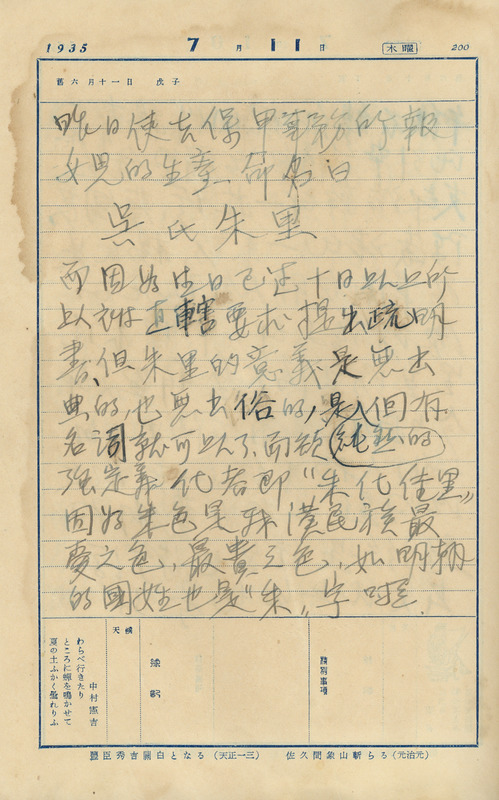 1935 7月11日 木曜 200
舊六月十一日 戊子
昨日使去保甲事務所報
女児的生產、命名曰
吳氏朱里
而因為生日已過十日以上所
以被直轄要求提出疏明
書、但朱里的意義是無出
典的,也無出俗的,是入但有
名詞就可以了、而頓純然的
強定義代者即"朱代佳里"
因為朱色是我漢民族最
愛之色,最貴之色,如明朝
的國姓也是"朱"字呵.
天候
中村憲吉
わらべ行きたり
ところに蟬を鳴かせて
夏の土ふかく曇れりふ
豫記
特別事項
豐臣秀吉關白となる(天正一三) 佐久間象山斬らる(元治元)